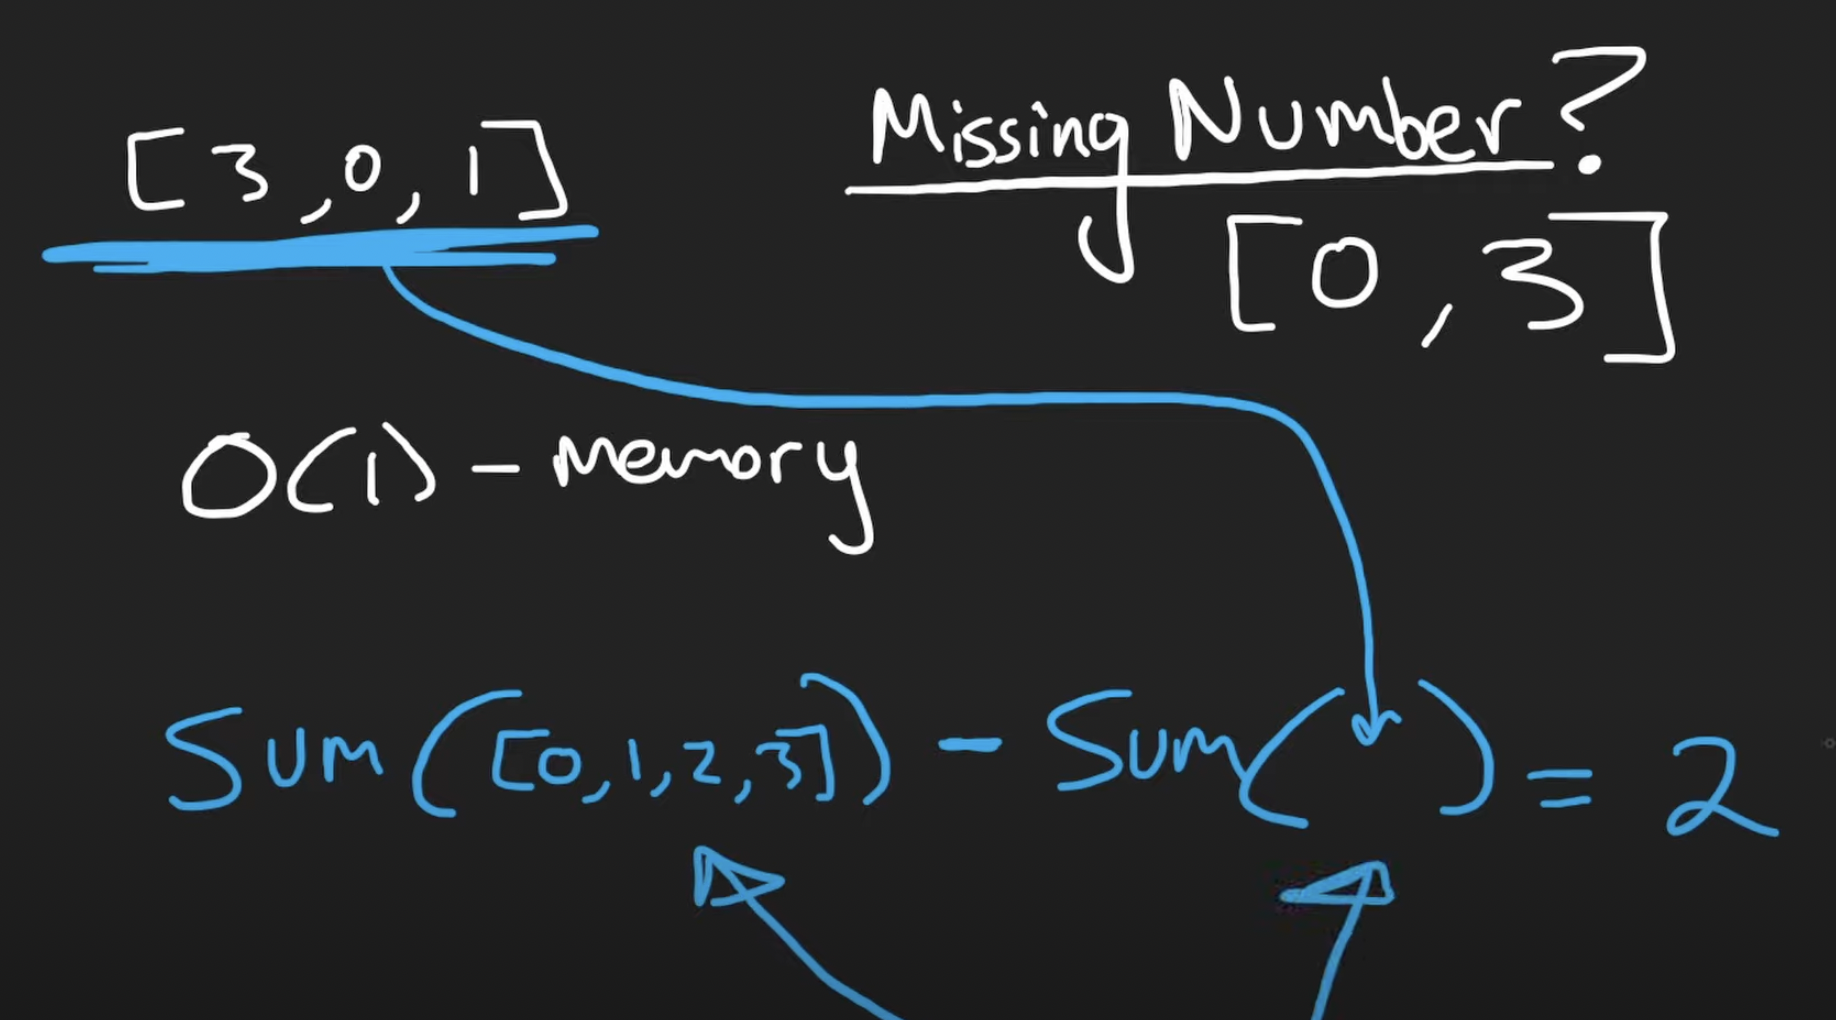 [3,0,1]
Missing Number?
[0,3]
O(1) - Memory
Sum([0,1,2,3]) - Sum( ) = 2